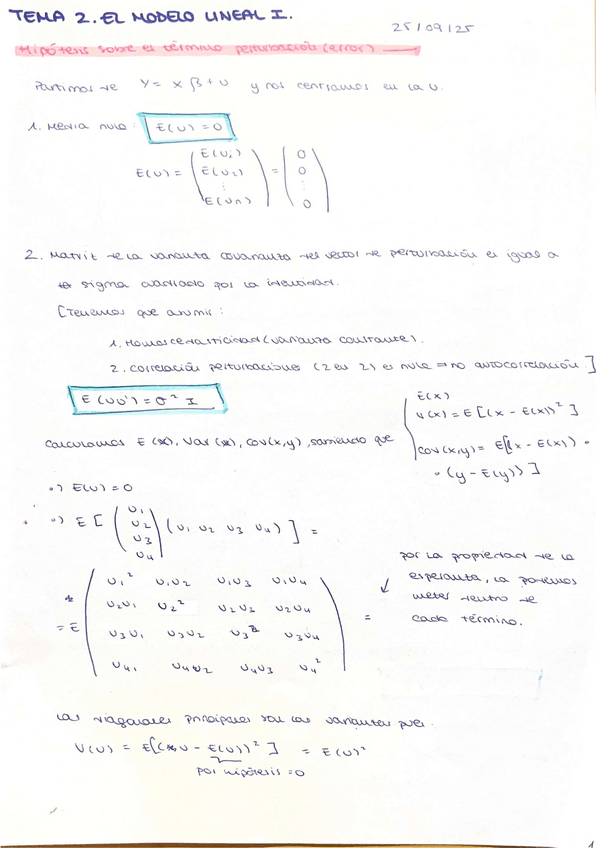 TEMA 2. EL MODELO LINEAL I.
25/09/25
Hipótesis sobre el término perturbación (error)
Partimos de Y = X β + U y nos centramos en la U.
1. Media nula: E(U) = 0
E(U) = ( E(U₁) E(U₂) ⋮ E(Un) ) = ( 0 0 ⋮ 0 )
2. Matriz de la varianza covarianza del vector de perturbación es igual a
sigma cuadrado por la identidad.
[Tenemos que asumir:
1. Homoscedasticidad (varianza constante).
2. Correlación perturbaciones (2 en 2) es nula ⇒ no autocorrelación]
E(UU') = σ² I
E(x)
V(x) = E[(x - E(x))²]
cov(x,y) = E[(x - E(x)) ·
· (y - E(y))]
Calculamos E(x), Var(x), cov(x,y), sabiendo que
·) E(U) = 0
·) E [ ( U₁ U₂ U₃ U₄ ) ( U₁ U₂ U₃ U₄ ) ] =
= E
U₁² U₁U₂ U₁U₃ U₁U₄
U₂U₁ U₂² U₂U₃ U₂U₄
U₃U₁ U₃U₂ U₃² U₃U₄
U₄₁ U₄U₂ U₄U₃ U₄²
=
por la propiedad de la
esperanza, la podemos
meter dentro de
cada término.
Las diagonales principales son las varianzas pues:
V(U) = E[(U - E(U))²] = E(U)²
por hipótesis = 0
1